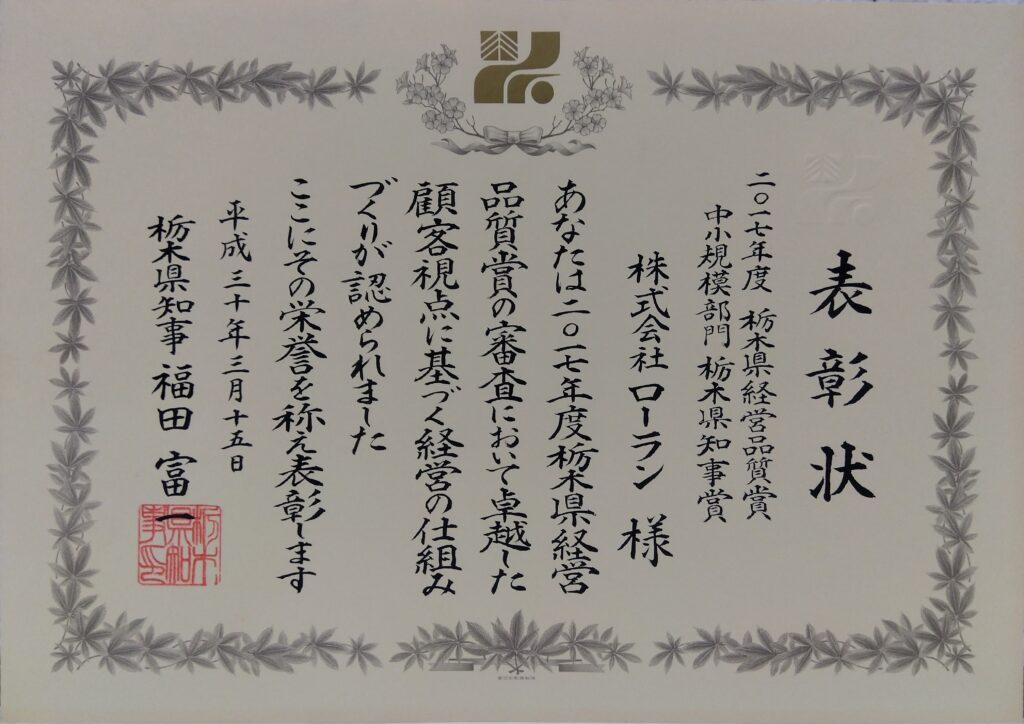 表彰状
二〇一七年度 栃木県経営品質賞
中小規模部門 栃木県知事賞
株式会社 ローラン 様
あなたは二〇一七年度栃木県経営
品質賞の審査において卓越した
顧客視点に基づく経営の仕組み
づくりが認められました
ここにその栄誉を称え表彰します
平成三十年三月十五日
栃木県知事 福田 富一